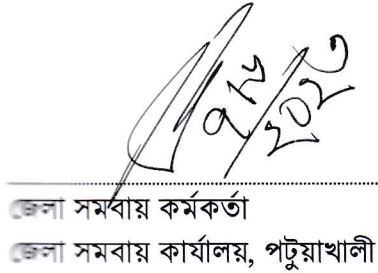 ২০২৩
জেলা সমবায় কর্মকর্তা
জেলা সমবায় কার্যালয়, পটুয়াখালী